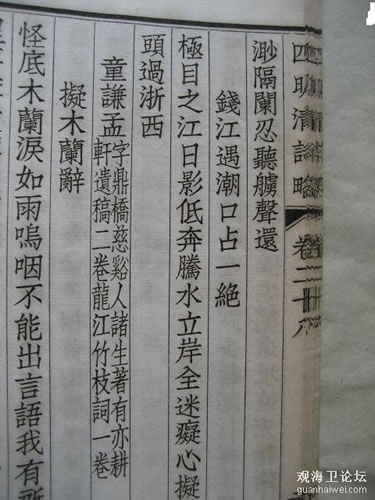 四明清詩略 卷二十八
渺隔闌忍聽艣聲還
錢江遇潮口占一絶
極目之江日影低奔騰水立岸全迷癡心擬
頭過浙西
童謙孟
字鼎橋慈谿人諸生著有亦耕
軒遺稿二卷龍江竹枝詞一卷
擬木蘭辭
怪底木蘭淚如雨嗚咽不能出言語我有所
观海卫论坛
guanhaiwei.com